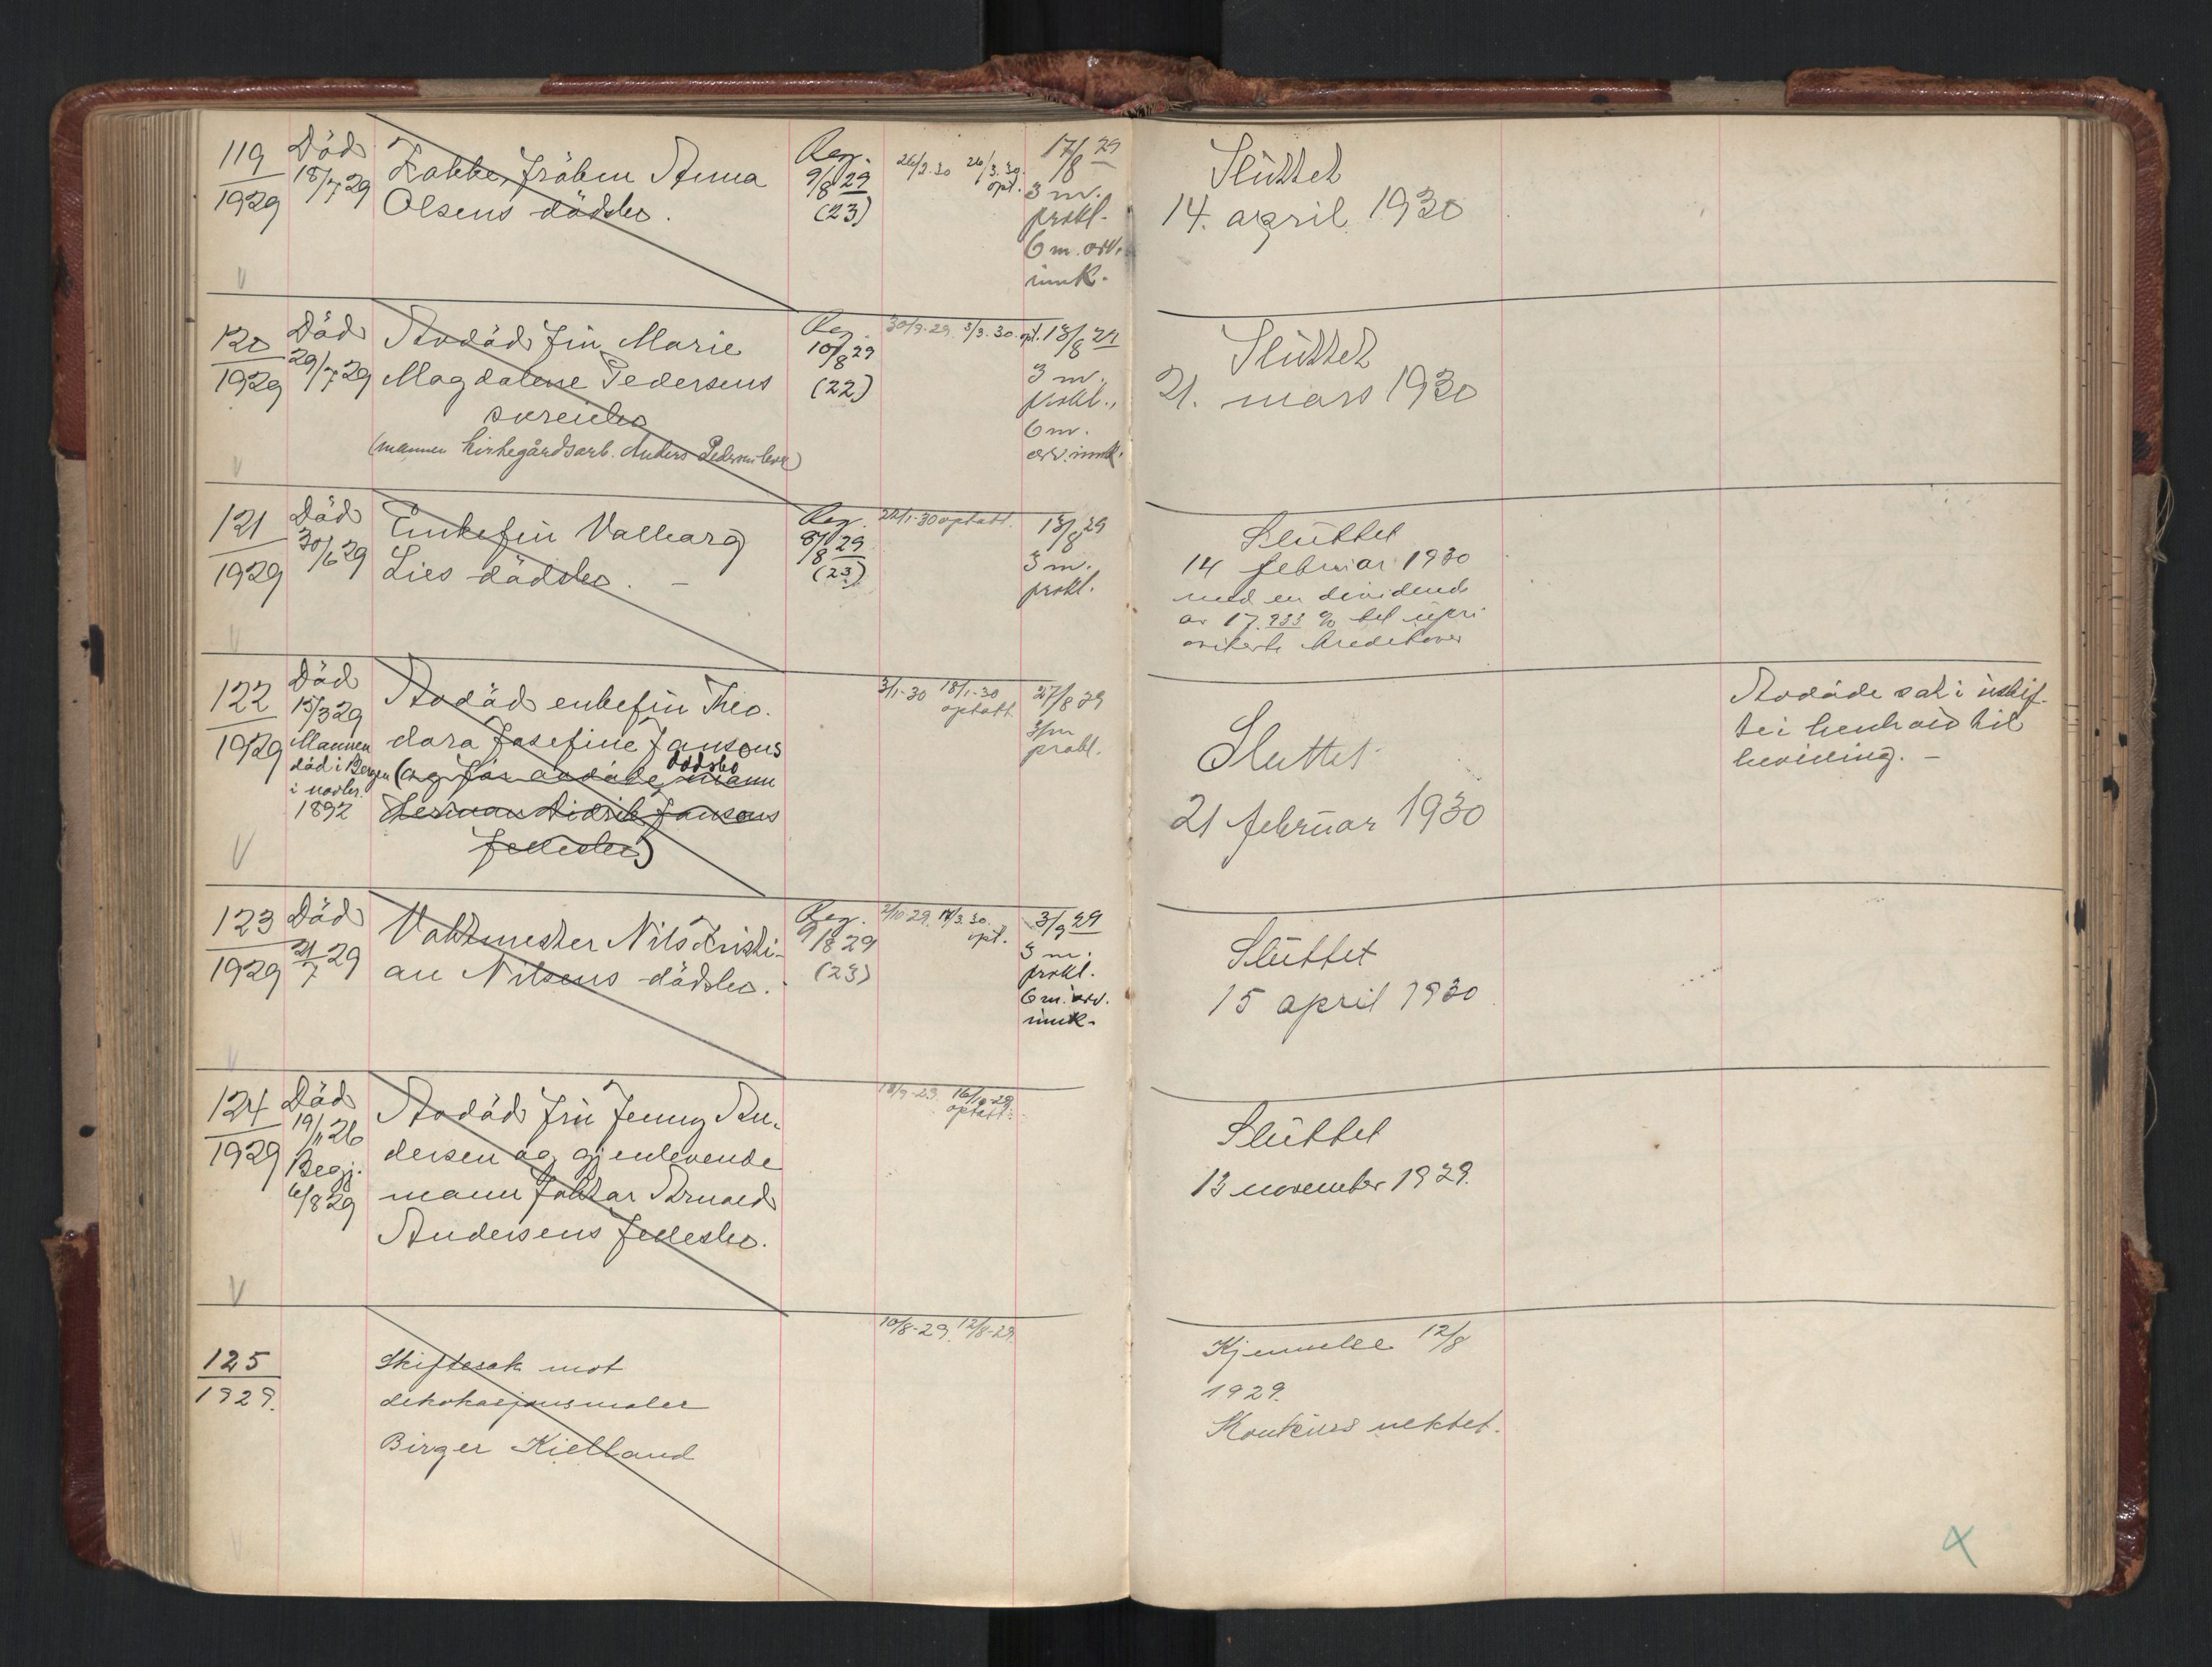 119
1929
Död
18/7 29
Fabbr. fröken Anna
Olsens dödsbo.
Reg.
9/8 29
(23)
26/3.30
opt.
17/8 29
3 m.
prokl.
6 m. arv.
innk.
Sluttet
14. april 1930
120
1929
Död
29/7 29
Avdöd fru Marie
Magdalene Pedersens
særeiebo
(mannen kirkegårdsarb. Anders Pedersen lever)
Reg.
10/8 29
(22)
30/9-29. 5/3.30. opt.
13/8 29
3 m.
prokl.,
6 m.
arv. innk.
Sluttet
21. mars 1930
121
1929
Död
30/6 29
Enkefru Valborg
Lies dödsbo. –
Reg.
8/8 29
(23)
22/1-30 optatt.
13/8 29
3 m.
prokl.
Sluttet
14 februar 1930
med en dividende
av 17.933 % til upri
oriterte kreditorer
122
1929
Död
15/3 29
Mannen
död i Bergen
i novbr.
1892
Avdöd enkefru Theo-
dora Josefine Jansons
dödsbo
(og för avdöde mann
Herman Didrik Jansons
fellesbo)
3/1-30 18/1-30
optatt
27/8 29
3/m
prokl.
Sluttet
21 februar 1930
Avdöde sat i uskif-
te i henhold til
bevilling. –
123
1929
Död
21/7 29
Vaktmester Nils Kristi-
an Nilsens dödsbo.
Reg.
9/8 29
(23)
2/10 29. 14/3.30.
opt.
3/9 29
3 m.
prokl.
6 m. arv.
innk.
Sluttet
15 april 1930
124
1929
Död
19/11 26
Begj.
6/8 29
Avdöd fru Jenny An-
dersen og gjenlevende
mann faktor Arnold
Andersens fellesbo.
18/9-29. 16/10-29
optatt.
Sluttet
13 november 1929.
125
1929.
Skiftesak mot
dekorasjonsmaler
Birger Kielland
10/8-29. 12/8-29.
Kjennelse 12/8
1929.
Konkurs nektet.